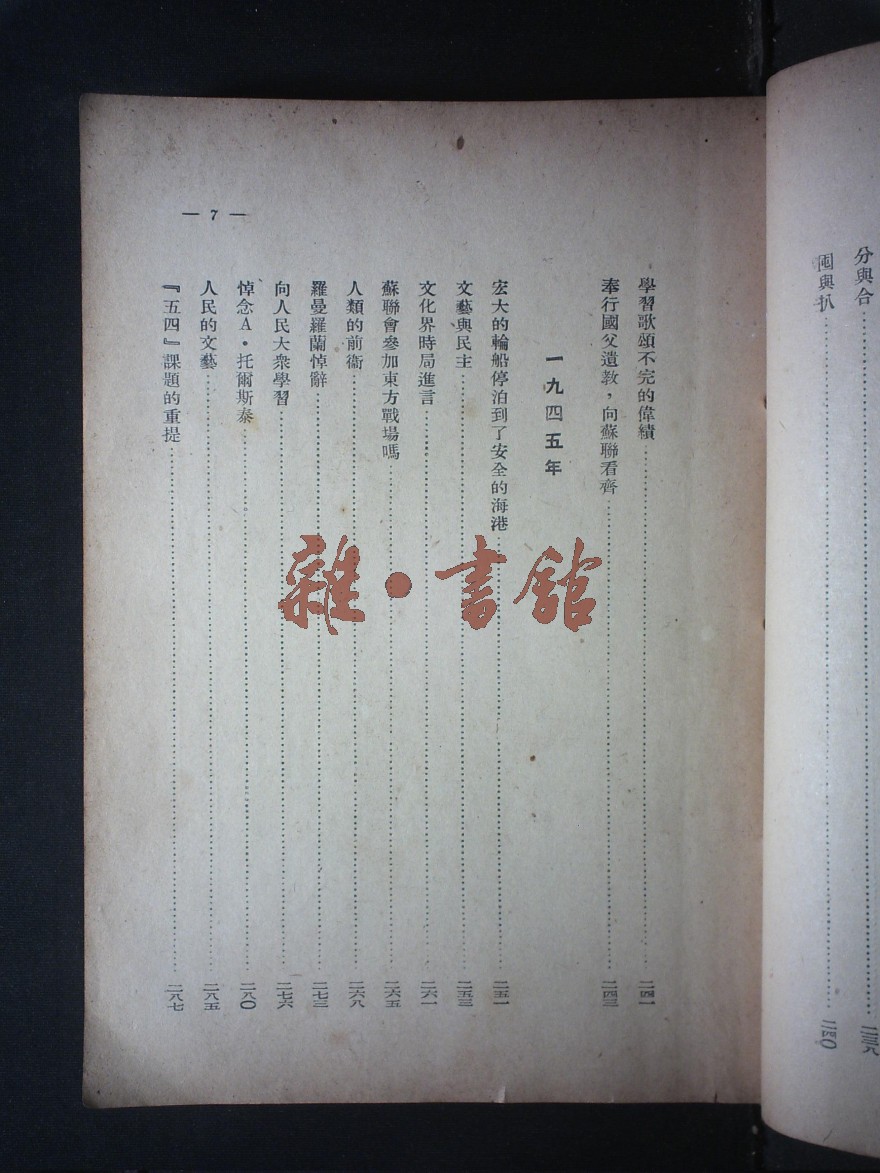 分與合……二三九
囤與扒……二四〇
— 7 —
學習歌頌不完的偉績……二四一
奉行國父遺敎，向蘇聯看齊……二四三
一九四五年
宏大的輪船停泊到了安全的海港……二五一
文藝與民主……二五三
文化界時局進言……二六一
蘇聯會參加東方戰場嗎……二六五
人類的前衞……二六八
羅曼羅蘭悼辭……二七三
向人民大衆學習……二七六
悼念A·托爾斯泰……二八〇
人民的文藝……二八五
『五四』課題的重提……二八七
雜·書館